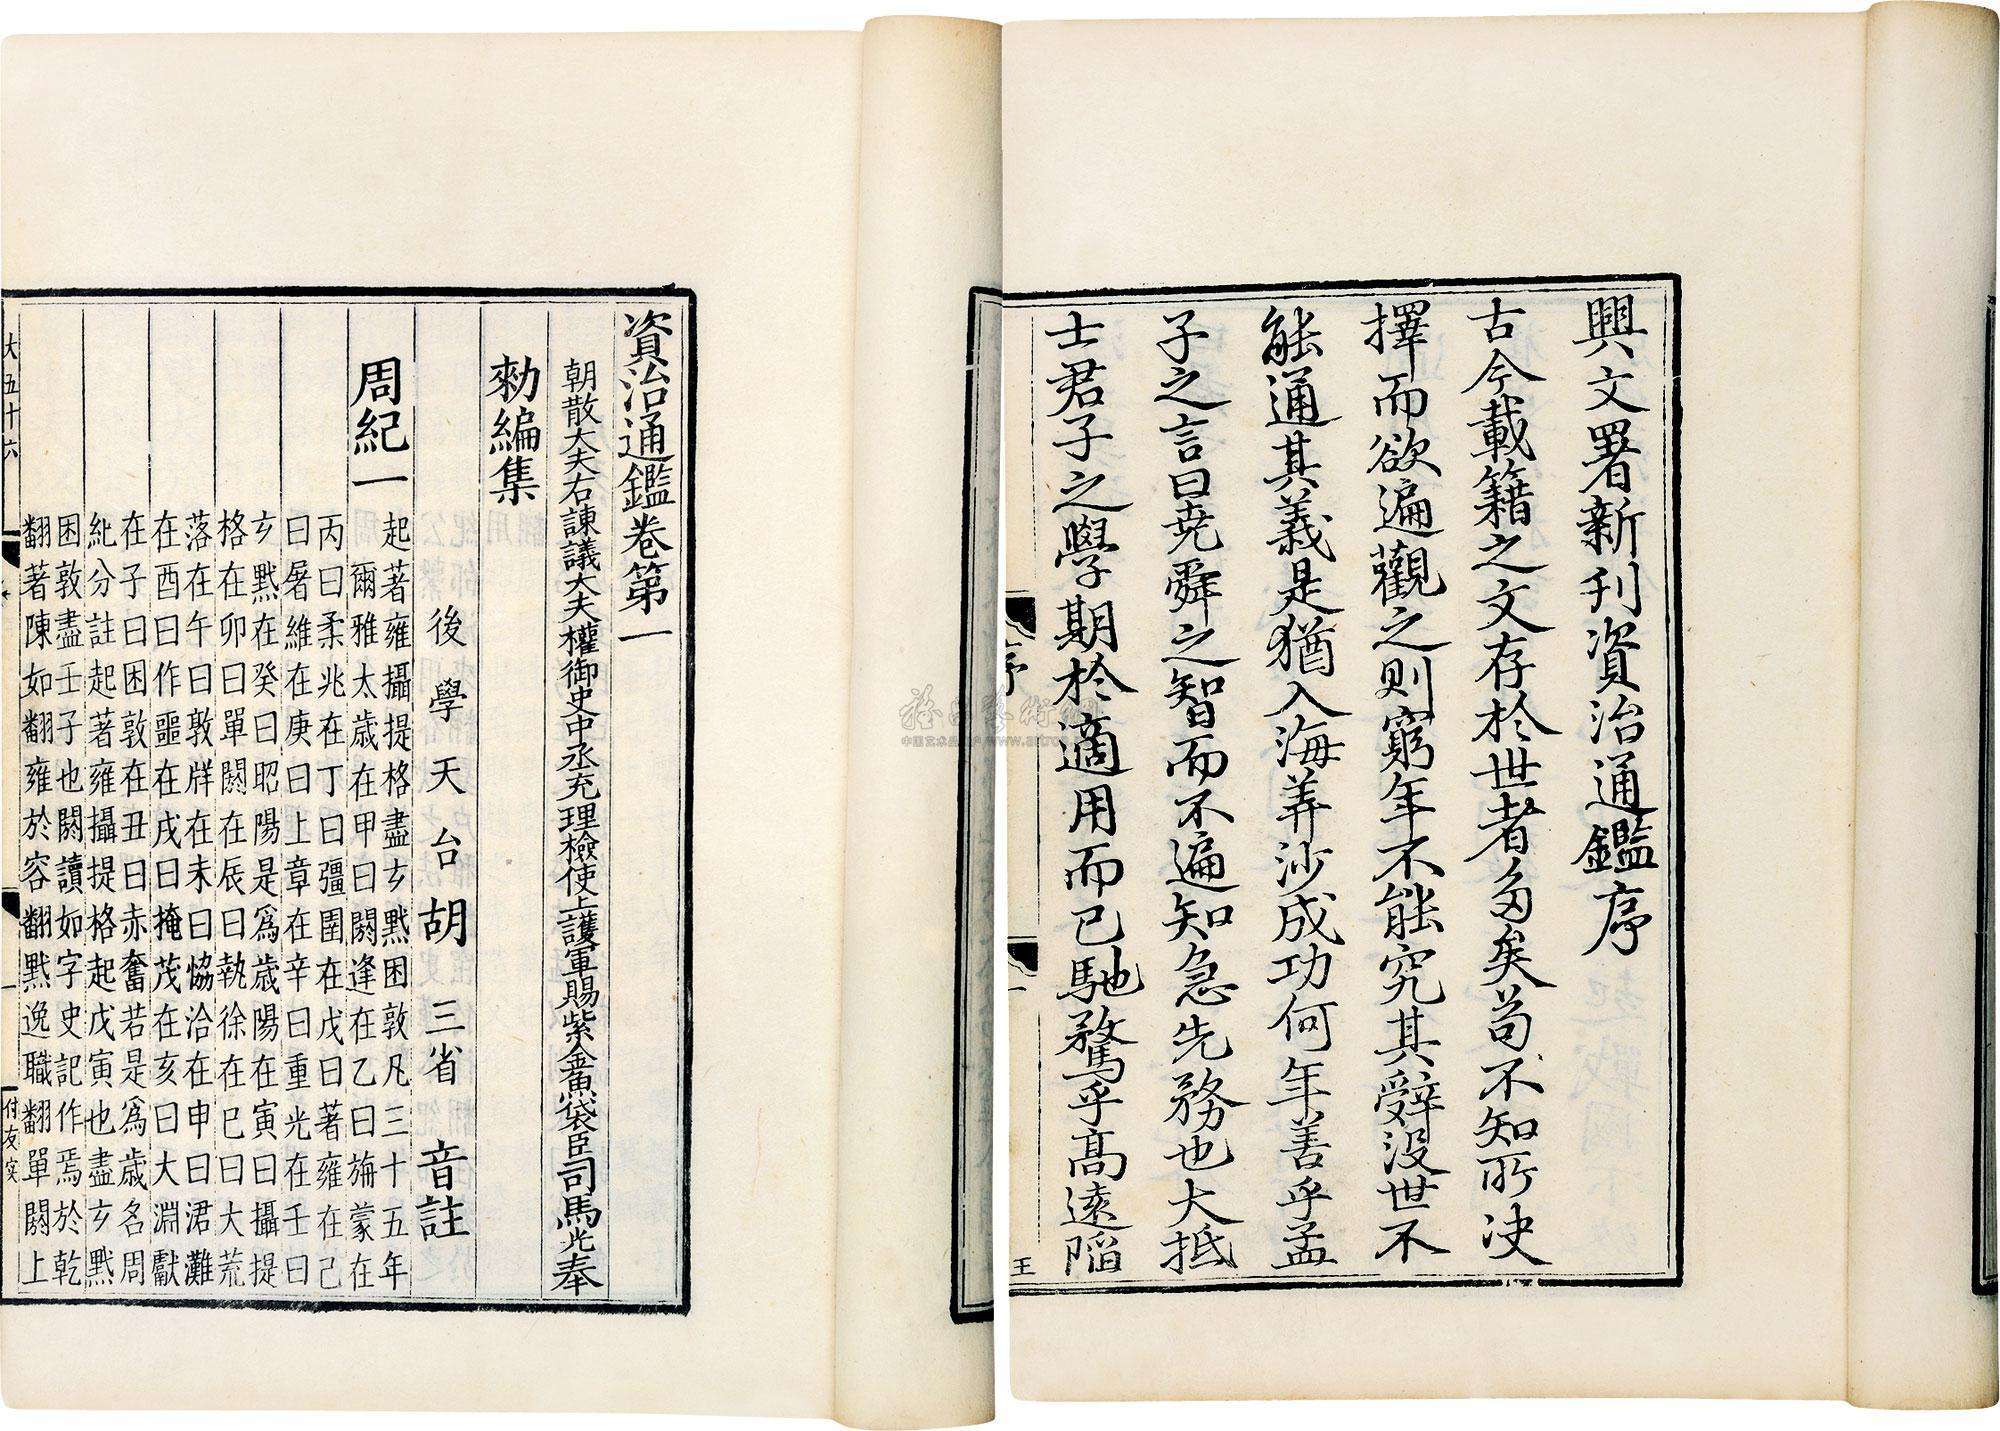 興文署新刊資治通鑑序
古今載籍之文存於世者多矣苟不知所決
擇而欲遍觀之則窮年不能究其辭没世不
能通其義是猶入海筭沙成功何年善乎孟
子之言曰堯舜之智而不遍知急先務也大抵
士君子之學期於適用而已馳騖乎高遠陷
序
一
王
資治通鑑卷第一
朝散大夫右諫議大夫權御史中丞充理檢使上護軍賜紫金魚袋臣司馬光奉
勑編集
後學天台胡三省音註
周紀一
起著雍攝提格盡玄黓困敦凡三十五年
爾雅太歲在甲曰閼逢在乙曰旃蒙在
丙曰柔兆在丁曰彊圉在戊曰著雍在己
曰屠維在庚曰上章在辛曰重光在壬曰
玄黓在癸曰昭陽是爲歲陽在寅曰攝提
格在卯曰單閼在辰曰執徐在巳曰大荒
落在午曰敦牂在未曰恊洽在申曰涒灘
在酉曰作噩在戌曰掩茂在亥曰大淵獻
在子曰困敦在丑曰赤奮若是爲歲名周
紀分註起著雍攝提格起戊寅也盡玄黓
困敦盡壬子也閼讀如字史記作焉於乾
翻著陳如翻雍於容翻黓逸職翻單閼上
大五十六
一
付友實